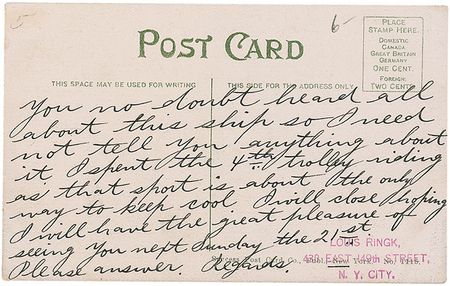 5
6-
POST CARD
PLACE
STAMP HERE.
DOMESTIC
CANADA
GREAT BRITAIN
GERMANY
ONE CENT.
FOREIGN:
TWO CENTS.
THIS SPACE MAY BE USED FOR WRITING
THIS SIDE FOR THE ADDRESS ONLY.
You no doubt heard all
about this ship so I need
not tell you anything about
it I spent the 4th trolley riding
as that sport is about the only
way to keep cool I will close hoping
I will have the great pleasure of
seeing you next Sunday the 21st.
Please answer. Regards.
Success Post Card Co., Publ., New York. No. 1115.
LOUIS RINGK,
EAST 149th STREET,
N. Y. CITY.